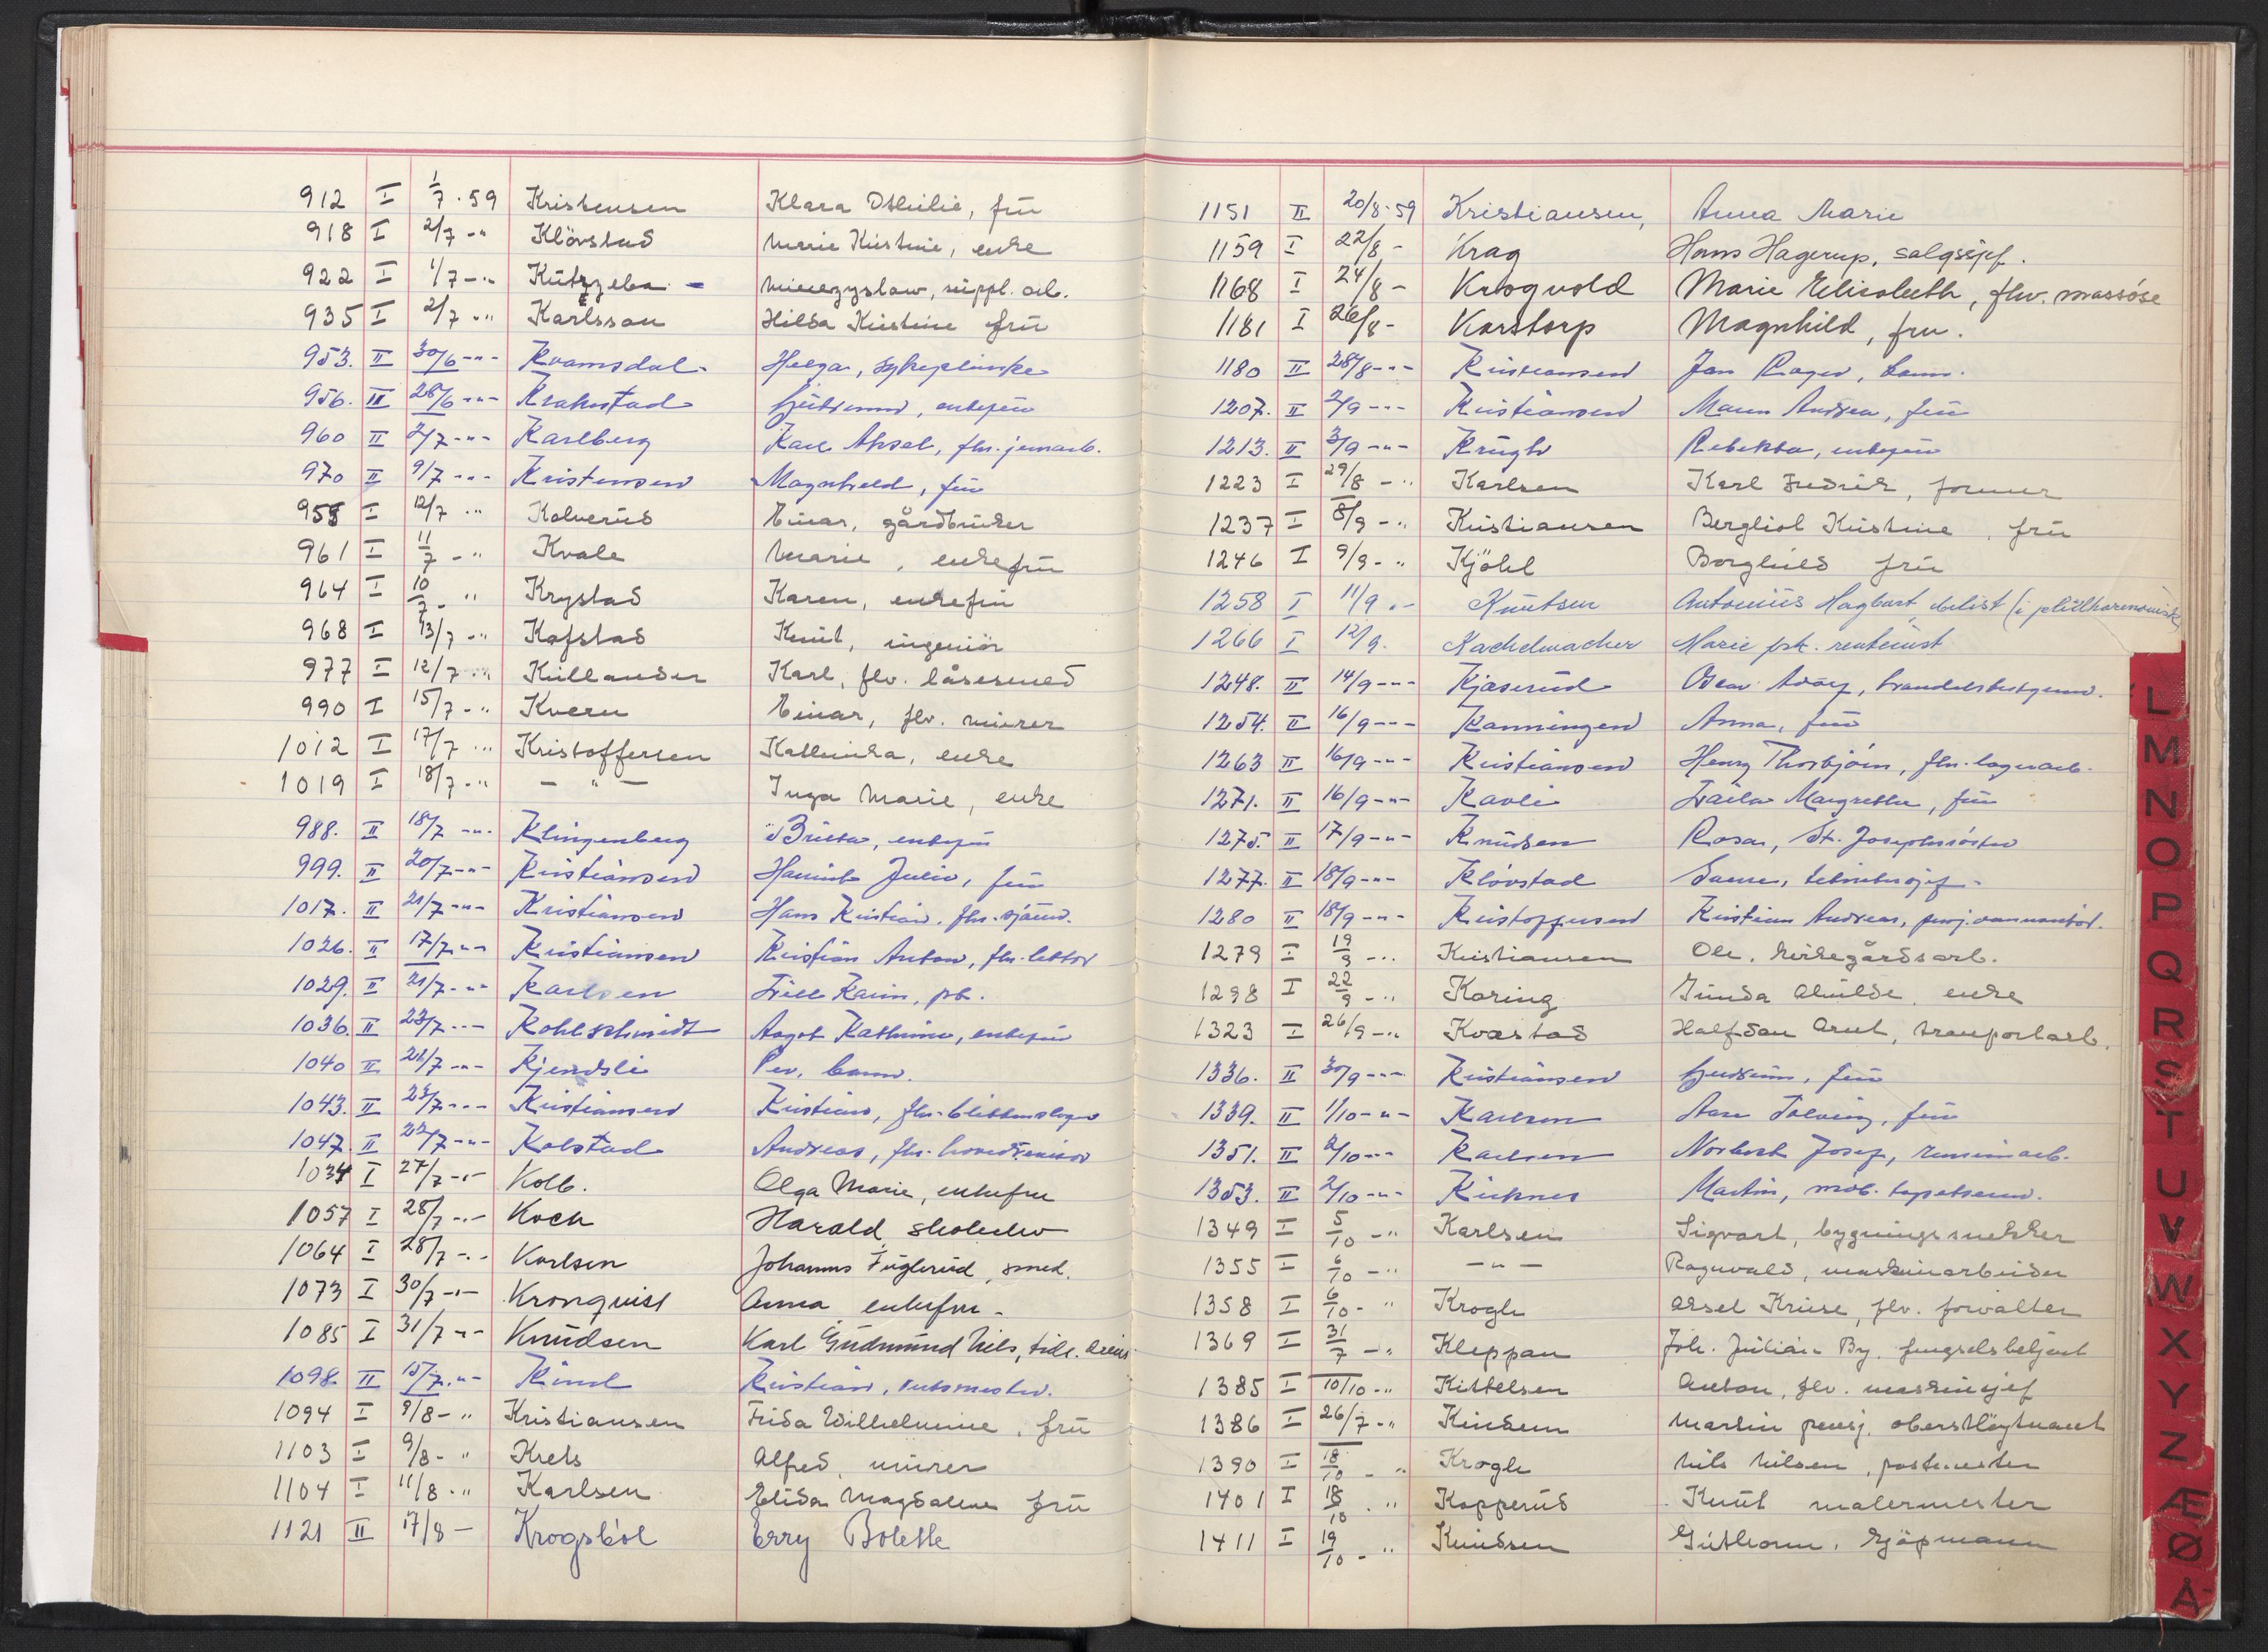 912 I 1/7-59 Kristensen Klara Othilie, frü
918 I 2/7 -"- Klövstad Marie Kristine, enke
922 I 1/7 -"- Kutzzeba - Mieczyslaw, suppl. arb.
935 I 2/7 -"- Karlsson Hilda Kristine frü
953. II 30/6 -"- Kvamsdal Helga, sykepleierske
956. II 28/6 -"- Krakstad Gudrunn, enkefrü
960 II 2/7 -"- Karlberg Karl Aksel, fhv. jernarb.
970 II 9/7 -"- Kristensen Magnhild, frü
958 I 12/7 -"- Kolverüd Einar, gårdbrüker
961 I 11/7 -"- Kvale Marie, enkefrü
964 I 10/7 -"- Krystad Karen, enkefrü
968 I 13/7 -"- Kafstad Knüt, ingeniör
977 I 12/7 -"- Küllander Karl, flv. låsesmed
990 I 15/7 -"- Kvern Einar, flv. mürer
1012 I 17/7 -"- Kristoffersen Kathinka, enke
1019 I 18/7 -"- - " - Inga Marie, enke
988. II 18/7 -"- Klingenberg Britta, enkefrü
999. II 20/7 -"- Kristiansen Julie, frü
1017. II 21/7 -"- Kristiansen Hans Kristian, fhv. sjåm.
1026. II 17/7 -"- Kristiansen Kristian Anton, fhv. lektor
1029. II 21/7 -"- Karlsen Karin, pb.
1036. II 23/7 -"- Kohlschmidt Aagot Kathrine, enkefrü
1040 II 21/7 -"- Kjendsli Per, barn.
1043. II 23/7 -"- Kristiansen Kristian, fhv. blikkenslager
1047. II 22/7 -"- Kolstad Andreas, fhv. hovedrevisor
1034 I 27/7 -"- Kolb. Olga Marie, enkefru
1057 I 28/7 -"- Koch Harald, skoelev
1064 I 28/7 -"- Karlsen Johannes Füglerüd, smed.
1073 I 30/7 -"- Kronquist Anna enkefru -
1085 I 31/7 -"- Knüdsen Karl Güdmünd Nils, tidl.
1098. II 15/7 -"- Kind Kristian, rutemester.
1094 I 9/8 -"- Kristiansen Frida Wilhelmine, frü
1103 I 9/8 -"- Krets Alfred, mürer
1104 I 11/8 -"- Karlsen Elida Magdalene frü
1121 II 17/8 - Krogsböl Erry Bolette
1151 II 20/8-59 Kristiansen, Anna Marie
1159 I 22/8 - Krag Hans Hagerup, salgssjef.
1168 I 24/8 - Krogvold Marie Elisabeth, fhv. massöse
1181 I 26/8 - Karstorp Magnhild, fru.
1180 II 28/8 -"- Kristiansen Jan Roger, barn.
1207. II 2/9 -"- Kristiansen Maren Andrea, frü
1213. II 3/9 -"- Krügh Rebekka, enkefrü
1223 I 29/8 -"- Karlsen Karl Fredrik, former
1237 I 8/9 -"- Kristiansen Bergliot Kristine, frü
1246 I 9/9 -"- Kjöhl Borghild frü
1258 I 11/9 -"- Knutsen Antoniüs Hagbart, (i philharmonisk)
1266 I 12/9. Kachelmacher Marie frk. rentenist
1248. II 14/9 -"- Kjaserud Oskar Adolf,
1254. II 16/9 -"- Kanningen Anna, frü
1263 II 16/9 -"- Kristiansen Henry Thorbjörn, fhv. lagerarb.
1271. II 16/9 -"- Kavli Margrethe, frü
1275. II 17/9 -"- Knüdsen Rosa, St. Josephsöster
1277. II 18/9 -"- Klövstad
1280 II 18/9 -"- Kristoffersen Kristian Andreas, pensj.
1279 I 19/9 -"- Kristiansen Ole, kirkegårdsarb.
1298 I 22/9 -"- Koring Günda Alvilde, enke
1323 I 26/9 -"- Kvastad Halfdan Arnt, transportarb.
1336. II 30/9 -"- Kristiansen Gudrun, frü
1339. II 1/10 -"- Karlsen Aase Solveig, frü
1351. II 2/10 -"- Karlsen Norbert Josef,
1353. II 2/10 -"- Kirknes Martin, møb. tapetserer.
1349 I 5/10 -"- Karlsen Sigvart, bygningssnekker
1355 I 6/10 -"- - " - Ragnvald, maskinarbeider
1358 I 6/10 -"- Krogh Aksel Krüse, flv. forvalter
1369 I 31/7 -"- Kleppan Joh. Jülian By. fengselsbetjent
1385 I 10/10 -"- Kittelsen Anton, flv. maskinsjef
1386 I 26/7 -"- Kindem Martin pensj. oberstløytnant
1390 I 18/10 -"- Krogh Nils Nilsen, postmester
1401 I 18/10 -"- Kopperüd Knüt malermester
1411 I 19/10 -"- Knüdsen Güthorm, kjöpmann
L
M
N
O
P
Q
R
S
T
U
V
W
X
Y
Z
Æ
Ø
Å